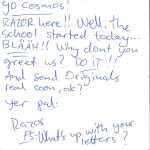 yo Cosmos!
RAZOR here!! Well, the
school started today...
BLÄÄH!! Why dont you
greet us? DO IT!!
And send Originals
real soon, ok?
yer pal:
Razor
PS: What's up with your
letters?